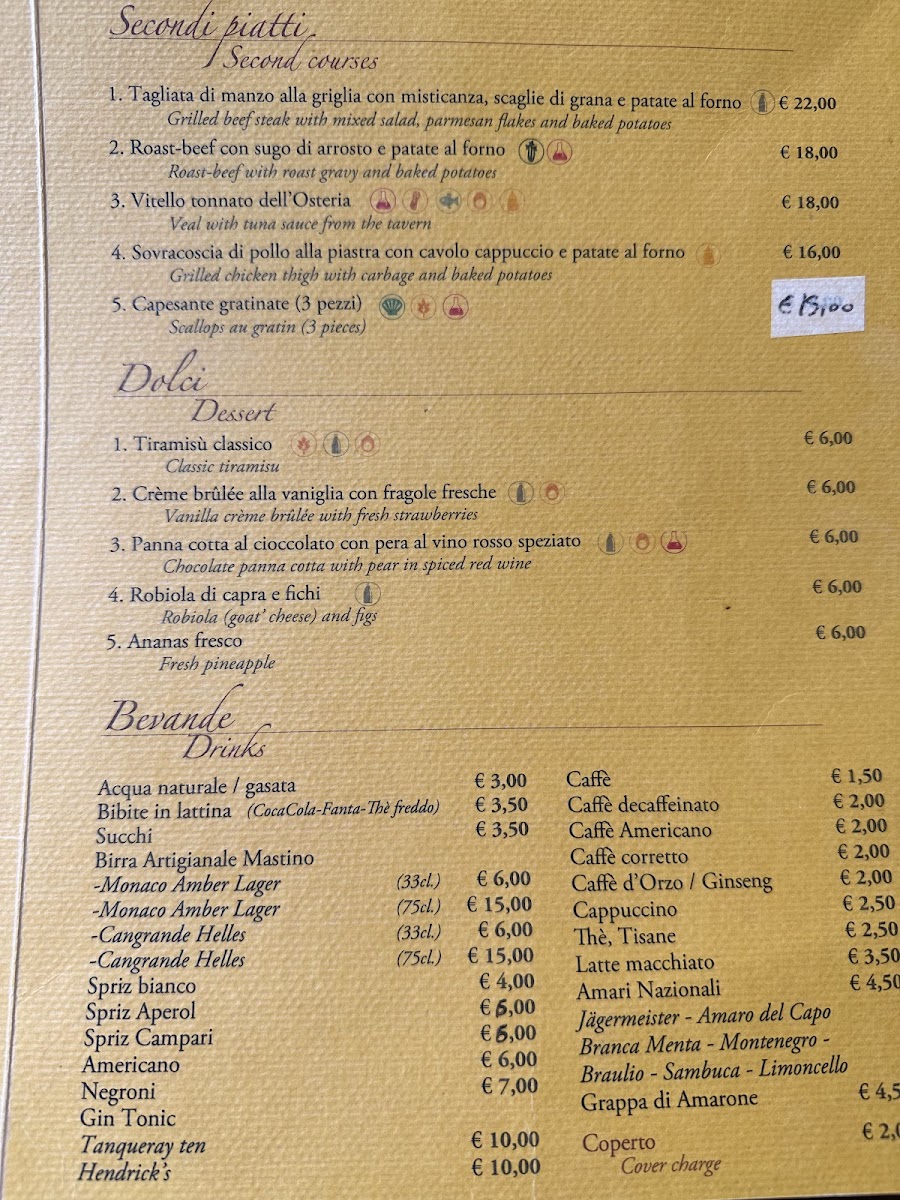 Secondi piatti
Second courses
1. Tagliata di manzo alla griglia con misticanza, scaglie di grana e patate al forno € 22,00
Grilled beef steak with mixed salad, parmesan flakes and baked potatoes
2. Roast-beef con sugo di arrosto e patate al forno € 18,00
Roast-beef with roast gravy and baked potatoes
3. Vitello tonnato dell'Osteria € 18,00
Veal with tuna sauce from the tavern
4. Sovracoscia di pollo alla piastra con cavolo cappuccio e patate al forno € 16,00
Grilled chicken thigh with carbage and baked potatoes
5. Capesante gratinate (3 pezzi)
Scallops au gratin (3 pieces)
Dolci
Dessert
1. Tiramisù classico € 6,00
Classic tiramisu
2. Crème brûlée alla vaniglia con fragole fresche € 6,00
Vanilla crème brûlée with fresh strawberries
3. Panna cotta al cioccolato con pera al vino rosso speziato € 6,00
Chocolate panna cotta with pear in spiced red wine
4. Robiola di capra e fichi € 6,00
Robiola (goat' cheese) and figs
5. Ananas fresco € 6,00
Fresh pineapple
Bevande
Drinks
Acqua naturale / gasata € 3,00
Bibite in lattina (CocaCola-Fanta-Thè freddo) € 3,50
Succhi € 3,50
Birra Artigianale Mastino
-Monaco Amber Lager (33cl.) € 6,00
-Monaco Amber Lager (75cl.) € 15,00
-Cangrande Helles (33cl.) € 6,00
-Cangrande Helles (75cl.) € 15,00
Spriz bianco € 4,00
Spriz Aperol
Spriz Campari
Americano € 6,00
Negroni € 7,00
Gin Tonic
Tanqueray ten € 10,00
Hendrick's € 10,00
Caffè € 1,50
Caffè decaffeinato € 2,00
Caffè Americano € 2,00
Caffè corretto € 2,00
Caffè d'Orzo / Ginseng € 2,00
Cappuccino € 2,50
Thè, Tisane € 2,50
Latte macchiato € 3,50
Amari Nazionali € 4,50
Jägermeister - Amaro del Capo
Branca Menta - Montenegro -
Braulio - Sambuca - Limoncello
Grappa di Amarone € 4,5
Coperto € 2,0
Cover charge